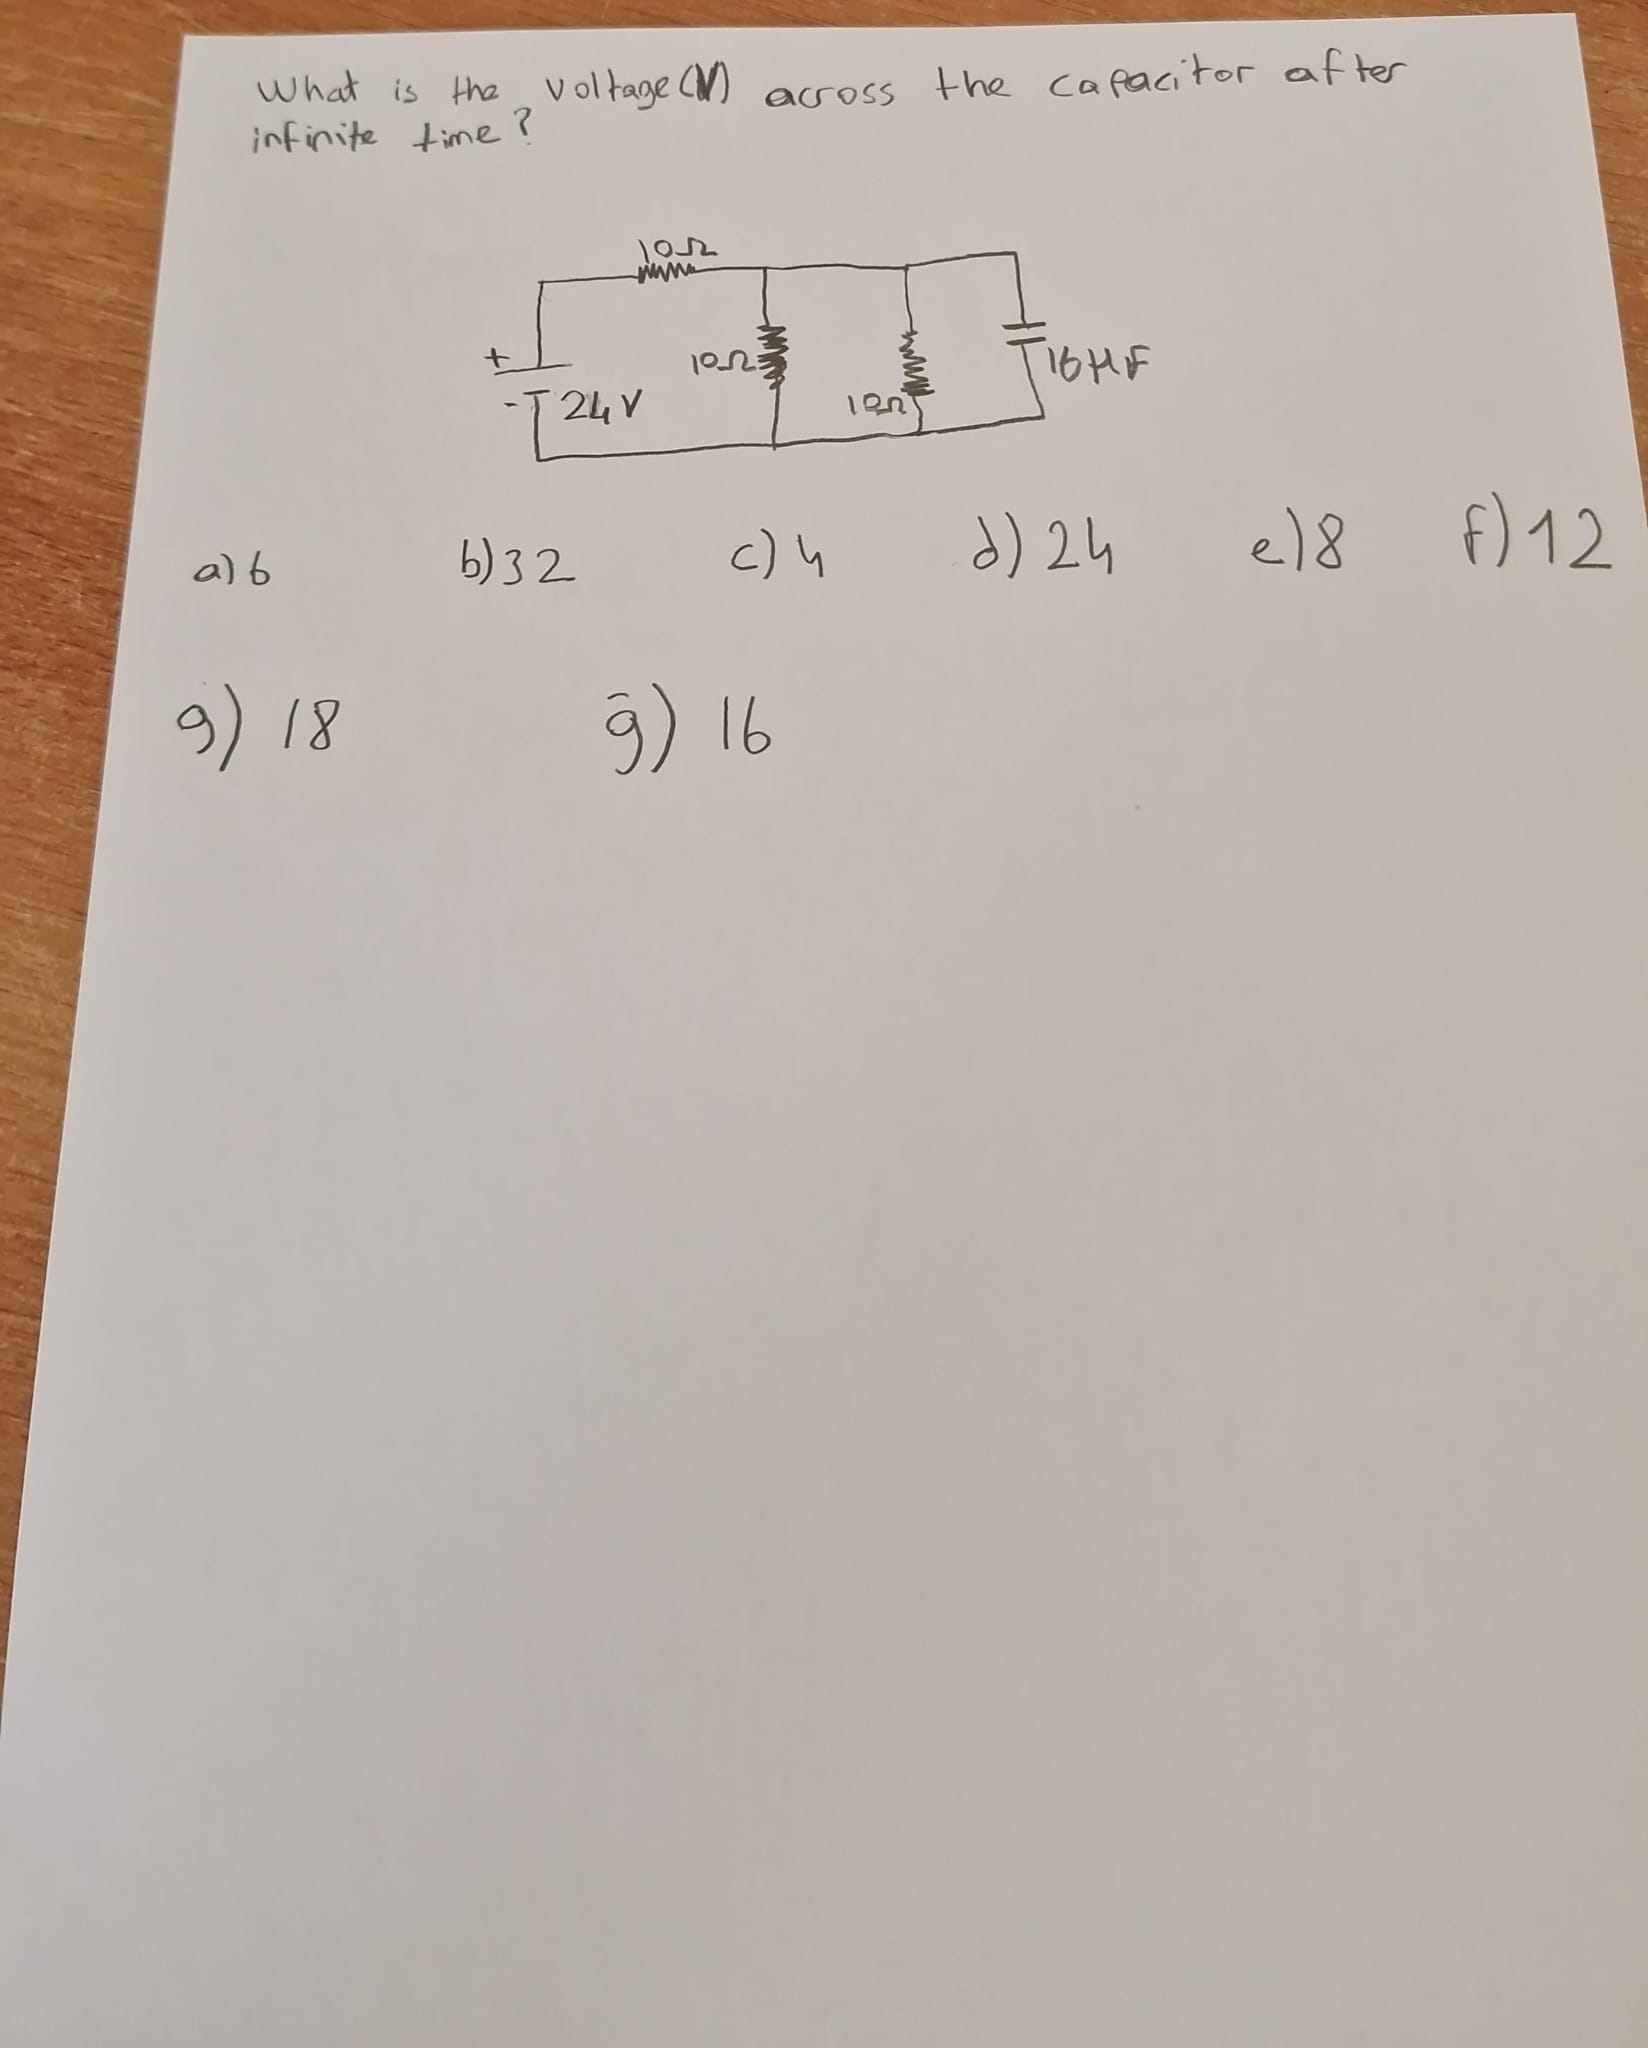 What is the voltage (V) across the capacitor after
infinite time?
10Ω
+
10Ω
16μF
- 24V
10Ω
a) 6 b) 32 c) 4 d) 24 e) 8 f) 12
g) 18 ğ) 16